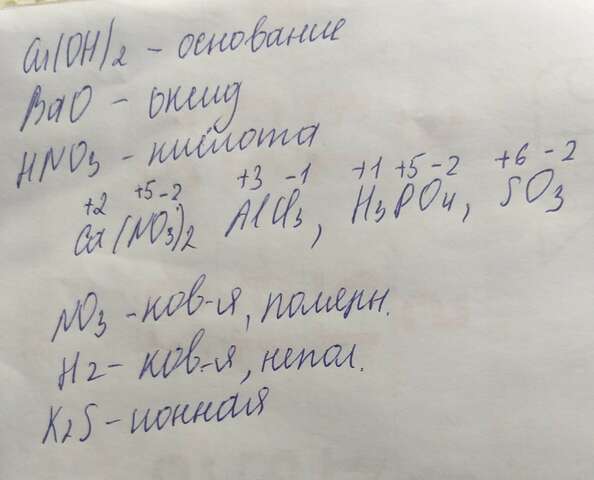 Cu(OH)2 - основание
BaO - оксид
HNO3 - кислота
+2 +5 -2 +3 -1 +1 +5 -2 +6 -2
Ca(NO3)2 AlCl3, H3PO4, SO3
NO3 - ков-я, полярн.
H2 - ков-я, непол.
K2S - ионная